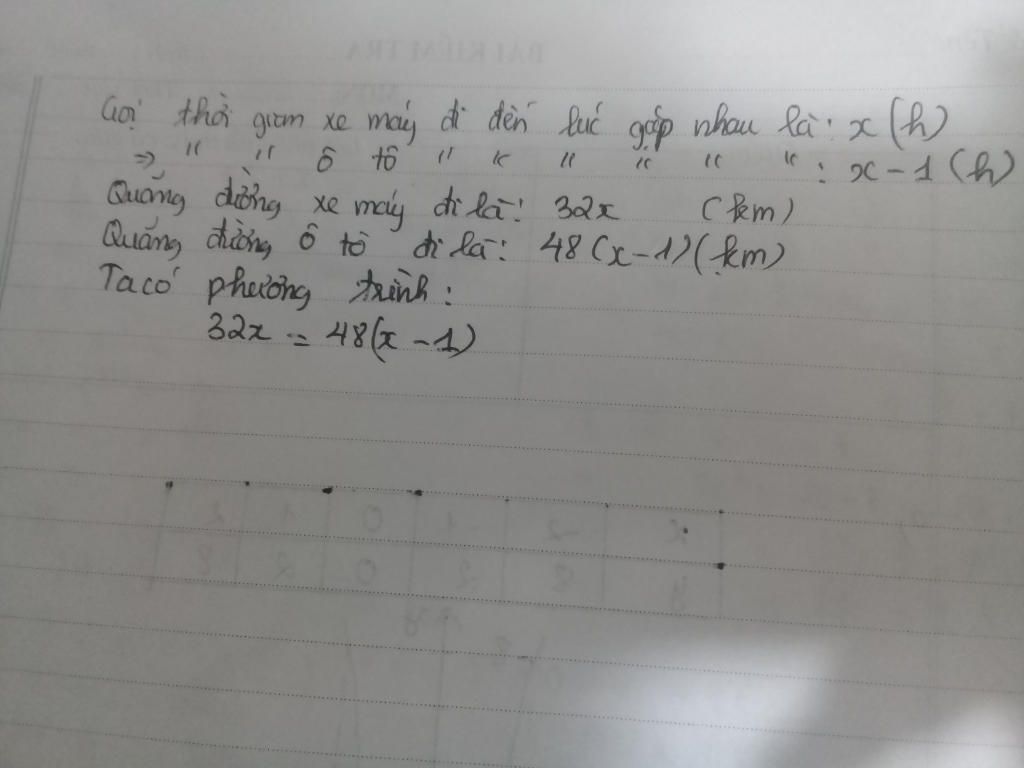 BÀI KIỂM TRA
Gọi thời gian xe máy đi đến lúc gặp nhau là: x (h)
=> " " ô tô " " " " " " : x - 1 (h)
Quãng đường xe máy đi là: 32x (km)
Quãng đường ô tô đi là: 48(x-1)(km)
Ta có phương trình:
32x = 48(x - 1)
x -2 -1 0 1 2
y 8 2 0 2 8